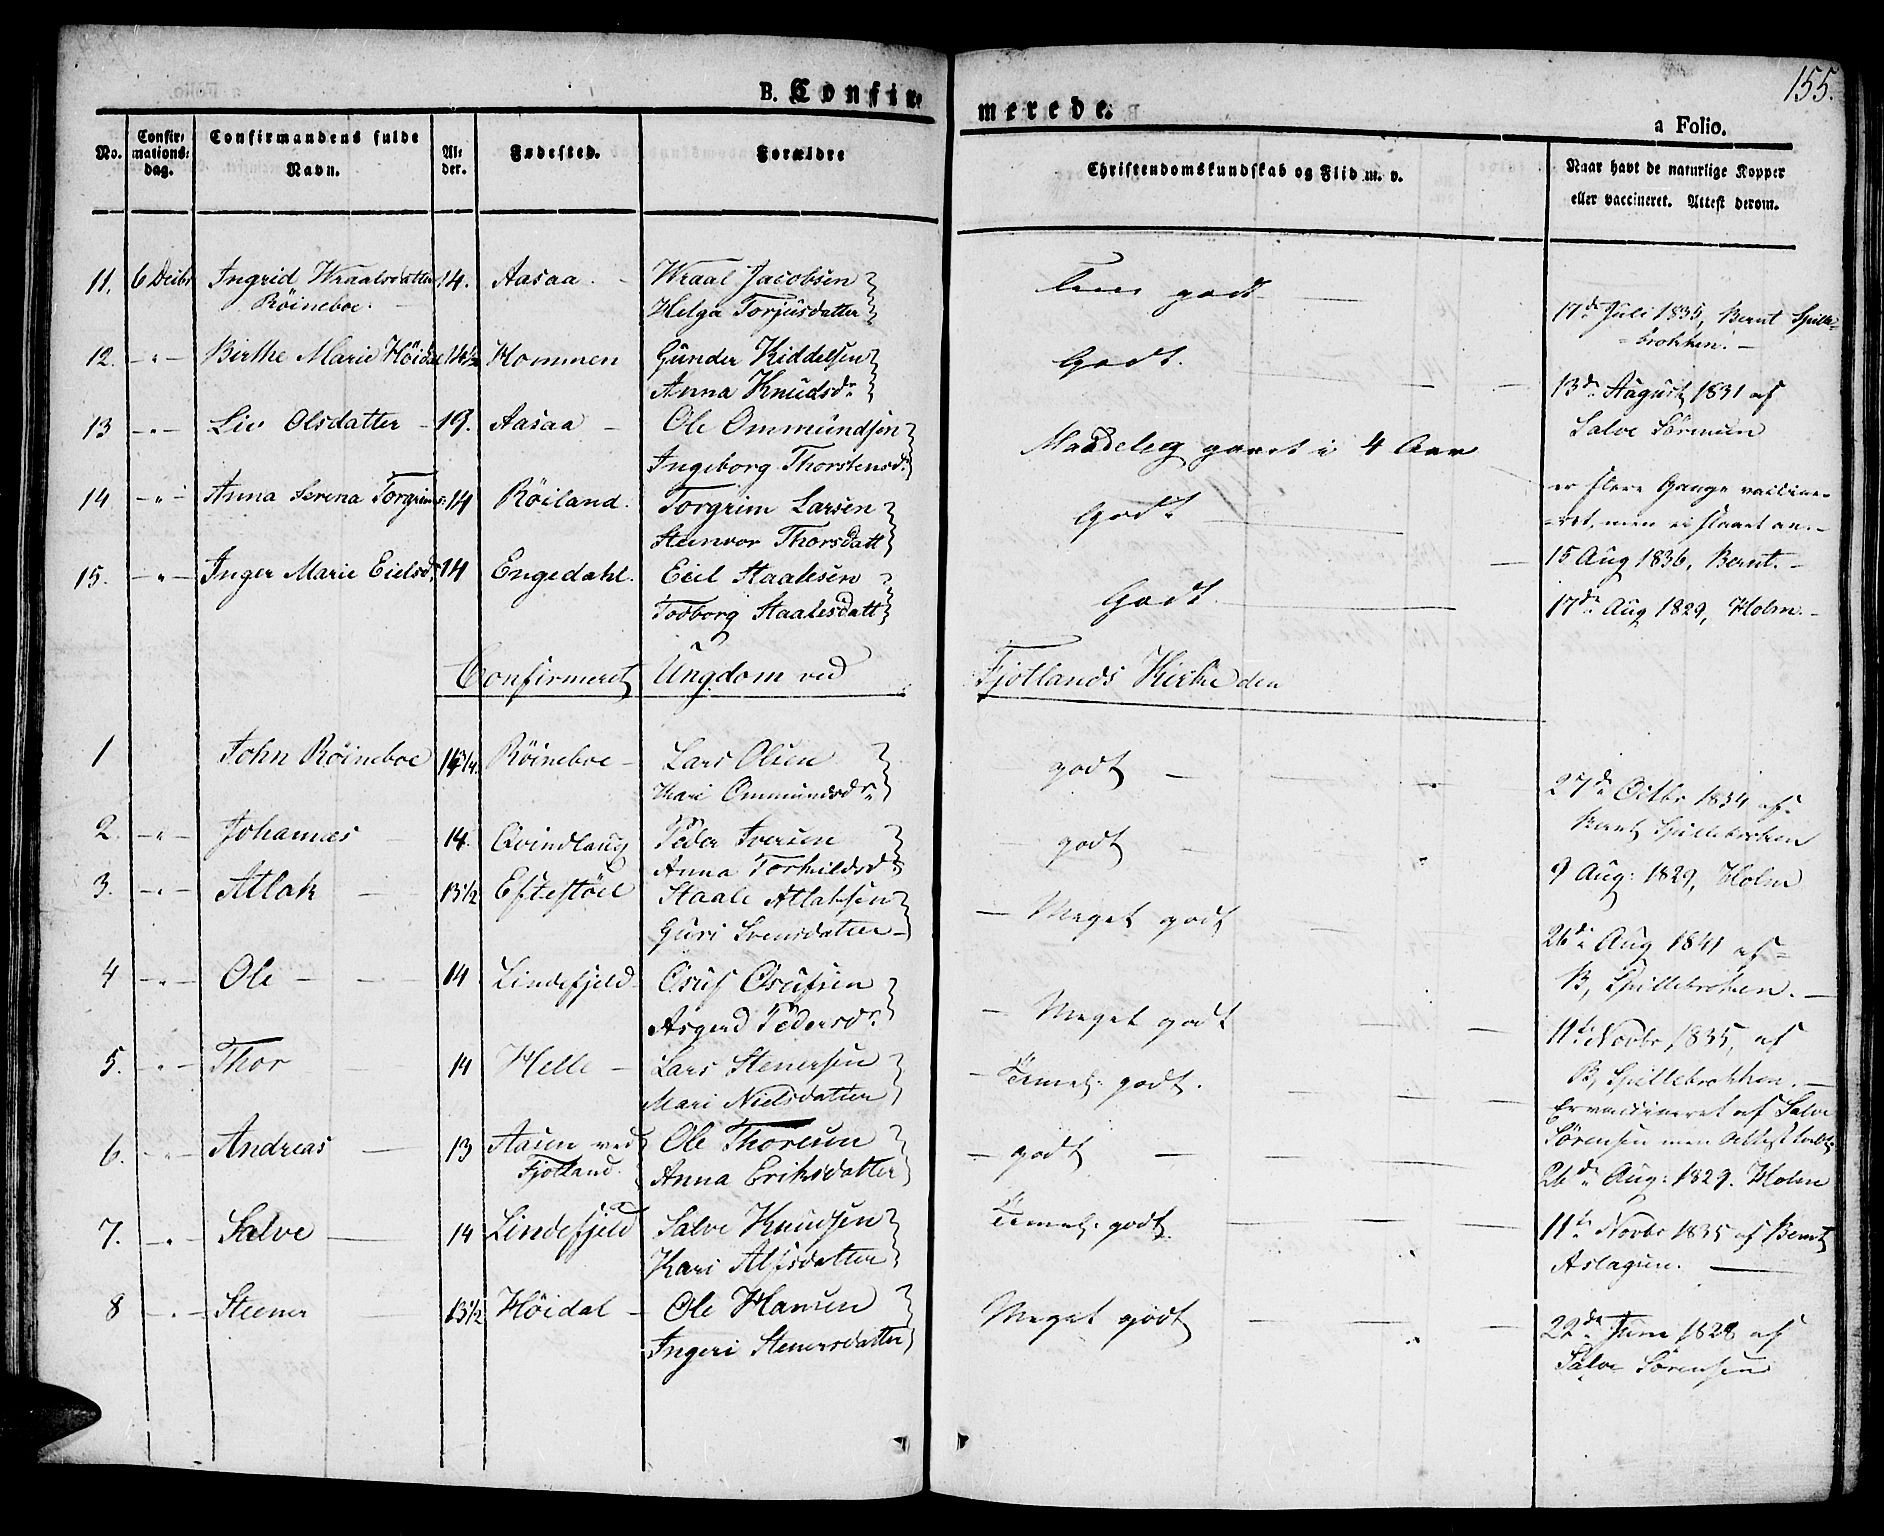 155.
B. Confirmerede.
a Folio.
No. Confirmationsdag. Confirmandens fulde Navn. Alder. Fødested. Forældre Christendomskundskab og Flid m. v. Naar havt de naturlige Kopper eller vaccineret. Attest derom.
11. 6 Decbr Ingrid Wraalsdatter 14. Aasaa. Wraal Jacobsen godt
Röineboe. Helga Torjusdatter 17de Juli 1835, Bernt Spille-
12. - " - Birthe Marie Höidal 14 1/2 Kommen Gunder Kiddelsen Godt. brokken.
Anna Knudsdr 13de August 1831 af
13 - " - Liv Olsdatter 19. Aasaa Ole Ommundsen Maadelig gaaet i 4 Aar Salve Sörensen
Ingeborg Thorstensdr
14 - " - Anna Serena Torgrims 14 Röiland. Torgrim Larsen Godt er flere Gange vaccine-
Steinvor Thorsdatt -ret, men ei slaaet an.
15. - " - Inger Marie Eielsdr 14 Engedahl. Eiel Staalesen Godt. 15 Aug 1836, Bernt.
Todborg Staalesdatt 17de Aug 1829, Holm.
Confirmeret Ungdom ved Fjotlands Kirke den
1 John Röineboe 14 3/4. Röineboe Lars Olsen godt
Kari Ommundsdr 27de Octbr 1834 af
2. - " - Johannes 14. Qvindlaug Peder Iversen godt Bernt Spillebrokken
Anna Torkildsdr
3. - " - Atlak 13 1/2 Eftestöel Staale Atlaksen Meget godt 9 Aug: 1829, Holm
Guri Svensdatter
4 - " - Ole 14 Lindefjeld Osuf Osufsen Meget godt 26de Aug 1841 af
Asgerd Pedersdr B, Spillebrokken.
5. - " - Thor 14 Helle Lars Stenersen Temel. godt. 11te Novbr 1835, af
Mari Nielsdatter B, Spillebrokken.
6. - " - Andreas 13 Aasen ved Ole Thoresen godt Er vaccineret af Salve
Fjotland. Anna Eriksdatter Sörensen men Attest
7. - " - Salve 14 Lindefjeld Salve Knudsen Temel. godt. 26de Aug: 1829. Holm
Kari Alfsdatter 11te Novbr 1835 af Bernt
Aslagsen.
8 - " - Steener 13 1/2 Höidal Ole Hansen Meget godt
Ingeri Stenersdatter 22de Juni 1828 af
Salve Sörensen